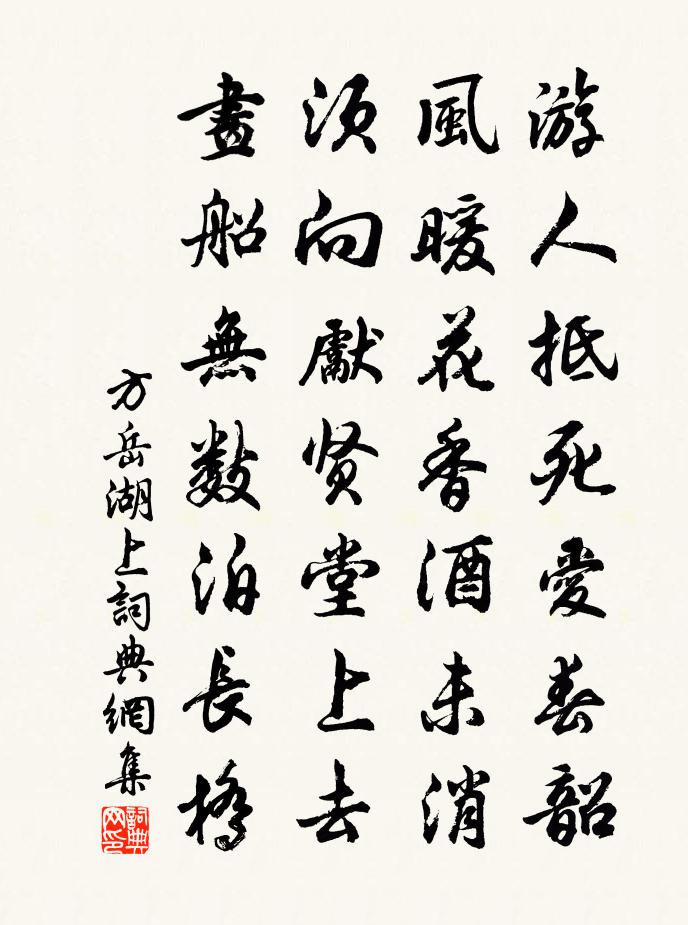 游人抵死愛春韶
風暖花香酒未消
須向獻贤堂上去
畫船無數泊長橋
方岳湖上詞典網集
詞典网印